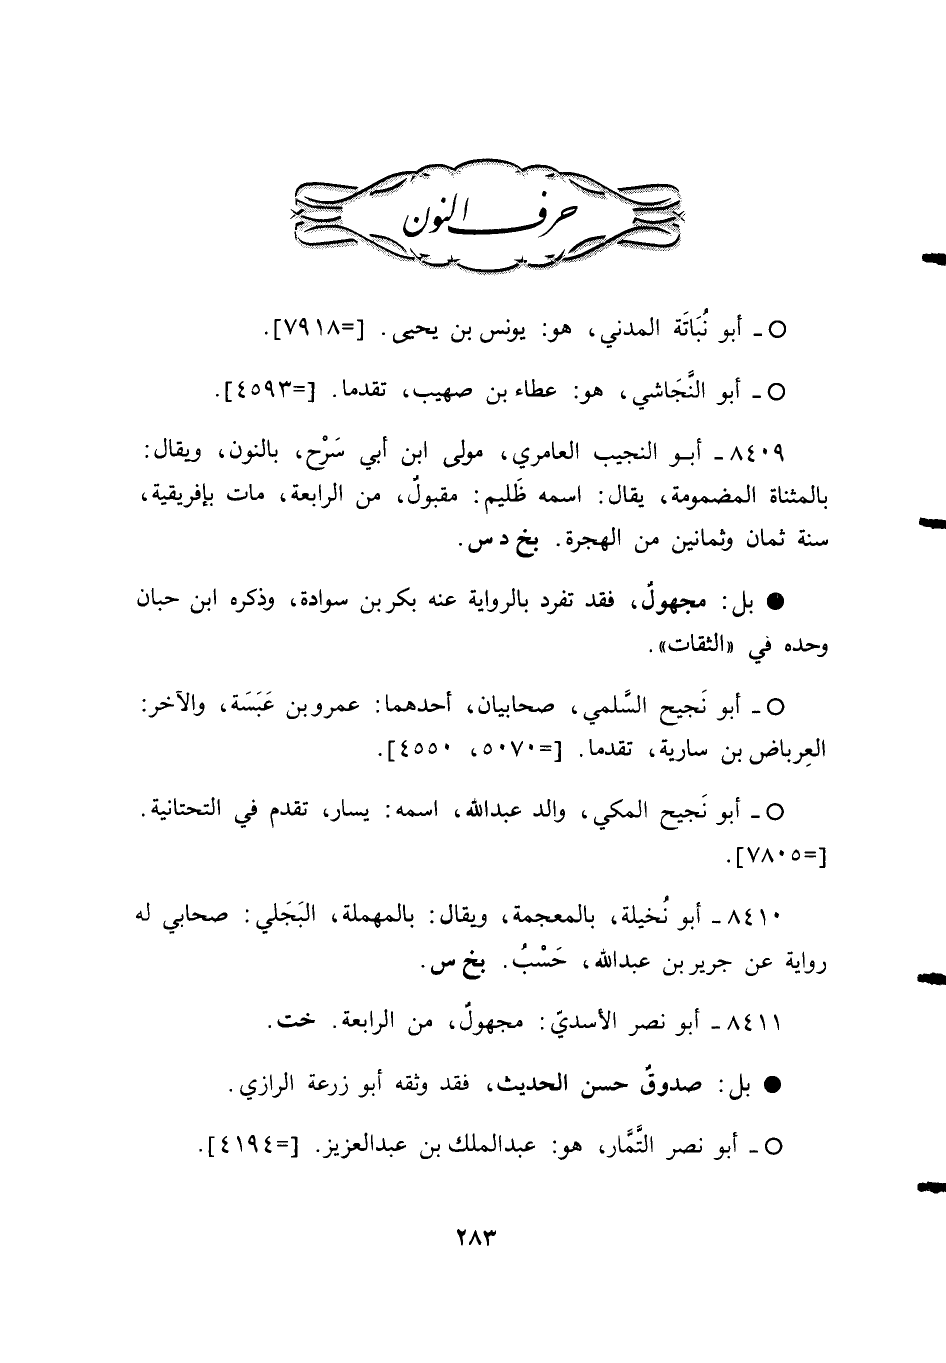 حرف النون
○ ـ أبو نُبَاتَة المدني، هو: يونس بن يحيى. [=٧٩١٨].
○ ـ أبو النَّجَاشي، هو: عطاء بن صهيب، تقدما. [=٤٥٩٣].
٨٤٠٩ ـ أبو النجيب العامري، مولى ابن أبي سَرْح، بالنون، ويقال:
بالمثناة المضمومة، يقال: اسمه ظَليم: مقبولٌ، من الرابعة، مات بإفريقية،
سنة ثمان وثمانين من الهجرة. بخ د س.
● بل: مجهولٌ، فقد تفرد بالرواية عنه بكر بن سوادة، وذكره ابن حبان
وحده في «الثقات».
○ ـ أبو نَجيح السَّلمي، صحابيان، أحدهما: عمرو بن عَبَسَة، والآخر:
العِرباض بن سارية، تقدما. [=٥٠٧٠، ٤٥٥٠].
○ ـ أبو نَجيح المكي، والد عبدالله، اسمه: يسار، تقدم في التحتانية.
[=٧٨٠٥].
٨٤١٠ ـ أبو نُخيلة، بالمعجمة، ويقال: بالمهملة، البَجَلي: صحابي له
رواية عن جرير بن عبدالله، حَسْبُ. بخ س.
٨٤١١ ـ أبو نصر الأسديّ: مجهولٌ، من الرابعة. خت.
● بل: صدوقٌ حسن الحديث، فقد وثقه أبو زرعة الرازي.
○ ـ أبو نصر التَّمَّار، هو: عبدالملك بن عبدالعزيز. [=٤١٩٤].
٢٨٣